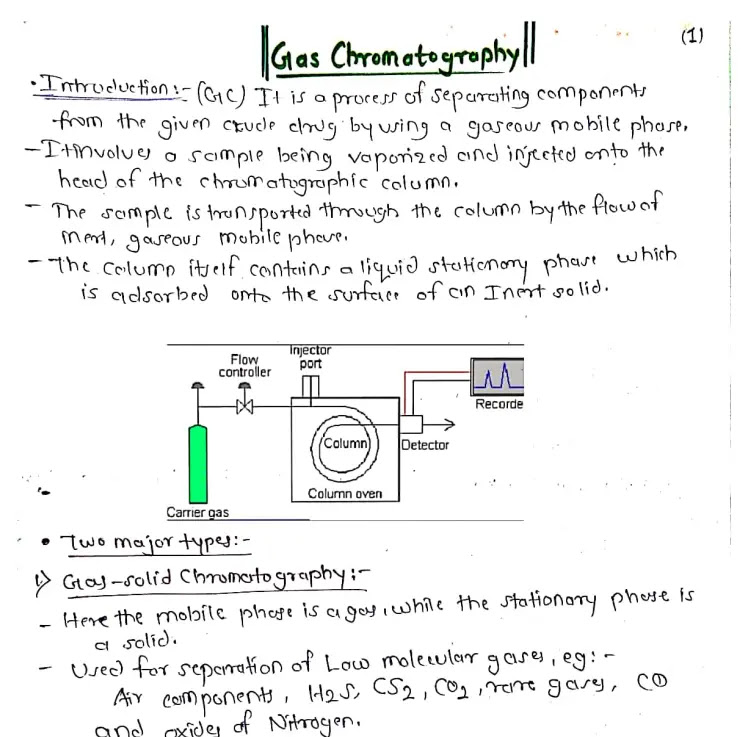 (1)
Gas Chromatography
• Introduction :- (GC) It is a process of separating components
from the given crude drug by using a gaseous mobile phase.
- It involves a sample being vaporized and injected onto the
head of the chromatographic column.
- The sample is transported through the column by the flow of
inert, gaseous mobile phase.
- The column itself contains a liquid stationary phase which
is adsorbed onto the surface of an Inert solid.
Flow
controller
Injector
port
Recorde
Column
Detector
Column oven
Carrier gas
• Two major types:-
1) Gas-solid Chromatography:-
- Here the mobile phase is a gas, while the stationary phase is
a solid.
- Used for separation of Low molecular gases, eg:-
Air components, H2S, CS2, CO2, rare gases, CO
and oxides of Nitrogen.